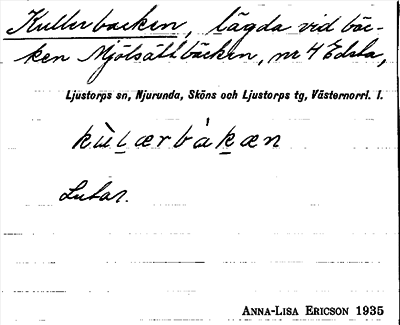 Kullerbacken, lägda vid bäc-
ken Mjölsättbäcken, nr 4 Edsta,
Ljustorps sn, Njurunda, Sköns och Ljustorps tg, Västernorrl. l.
kùl̲ærbàk̲æn
Lutar.
ANNA-LISA ERICSON 1935